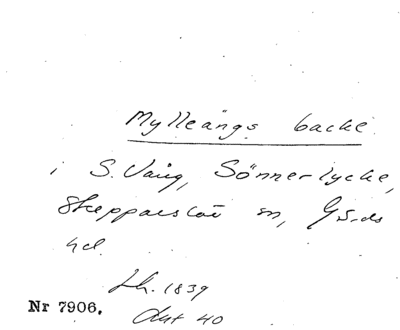 Mylleängs backe.
i S. Vång, Sönnerlycke,
Skepparslöv sn, Gärds
hd.
Lh. 1839
Akt 40
Nr 7906.